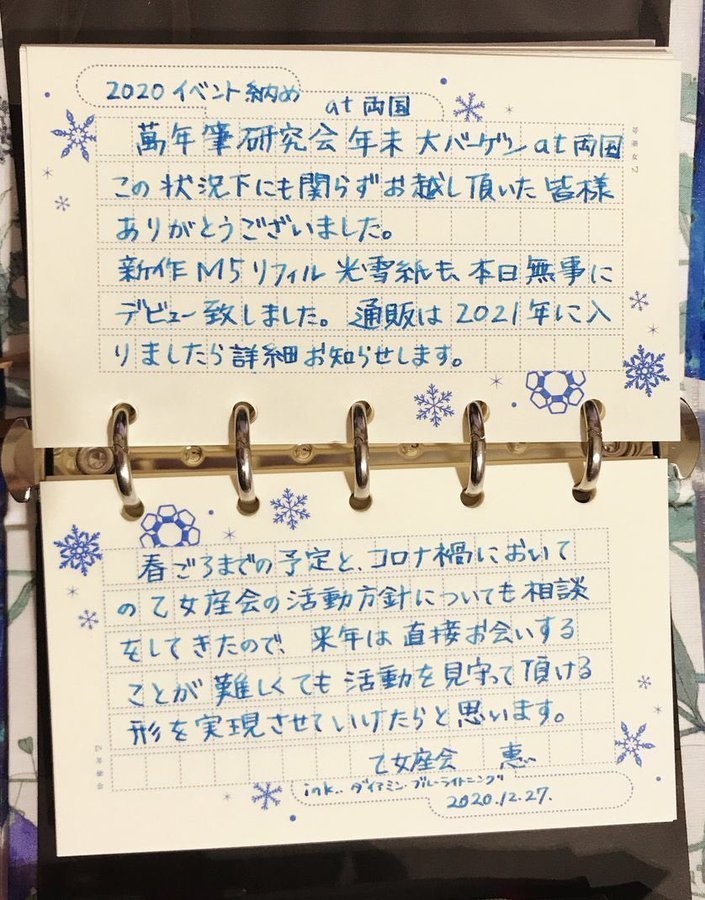 2020 イベント納め
at 両国
萬年筆研究会年末大バーゲンat両国
この状況下にも関らずお越し頂いた皆様
ありがとうございました。
新作M5リフィル 光雪紙も、本日無事に
デビュー致しました。通販は2021年に入
りましたら詳細お知らせします。
春ごろまでの予定と、コロナ禍において
の乙女座会の活動方針についても相談
をしてきたので、来年は直接お会いする
ことが難しくても活動を見守って頂ける
形を実現させていけたらと思います。
乙女座会 恵
ink.. ダイアミン・ブルーライトニング
2020.12.27.